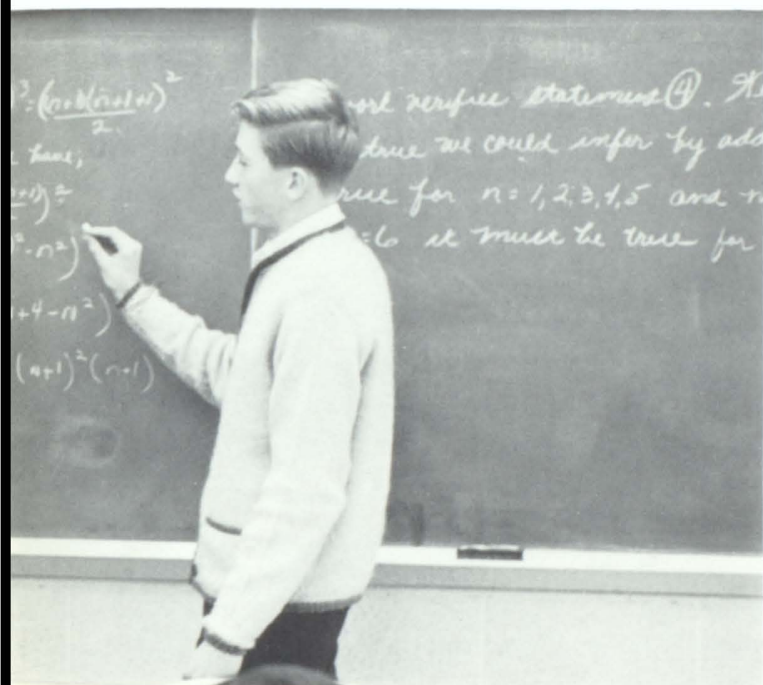 )³ = ((n+1)(n+1+1)/2)²
have;
n+1)/)²
² - n²)
+ 4 - n²)
(n+1)² (n+1)
work verifies statement ④.
true we could infer by add
true for n = 1, 2, 3, 4, 5 and n
=6 it must be true for